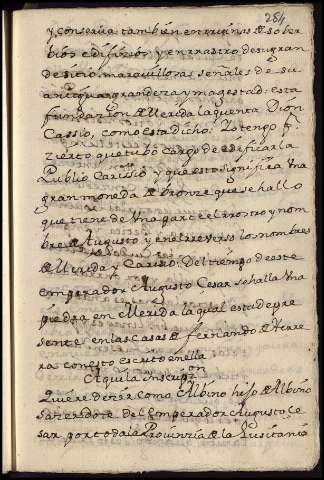 284
y conserva también en ruinas de sober
bios edificios y en rastro de su gran
de sitio maravillosas señales de su
antigua grandeza y magestad. esta
fundazion de Merida la quenta Dion
Cassio, como esta dicho. Lo tengo pr.
zierto que tubo cargo de edificar la
Publio Carissio y que esto significa una
gran moneda de bronze que se hallo
que tiene de una parte el rostro y nom
bre de Augusto y en el reverso los nombres
de Merida y Carissio. Del tiempo de este
emperador Augusto Cesar se halla una
piedra en Merida la qual esta de pre
sente en las casas de fernando de Herre
ra con esto escrito en ella
Aqui la inscripon
Quiere dezir como Albino hijo de Albino
sazerdote del Emperador Augusto Ce
sar por toda la Provinzia de la Lusitania